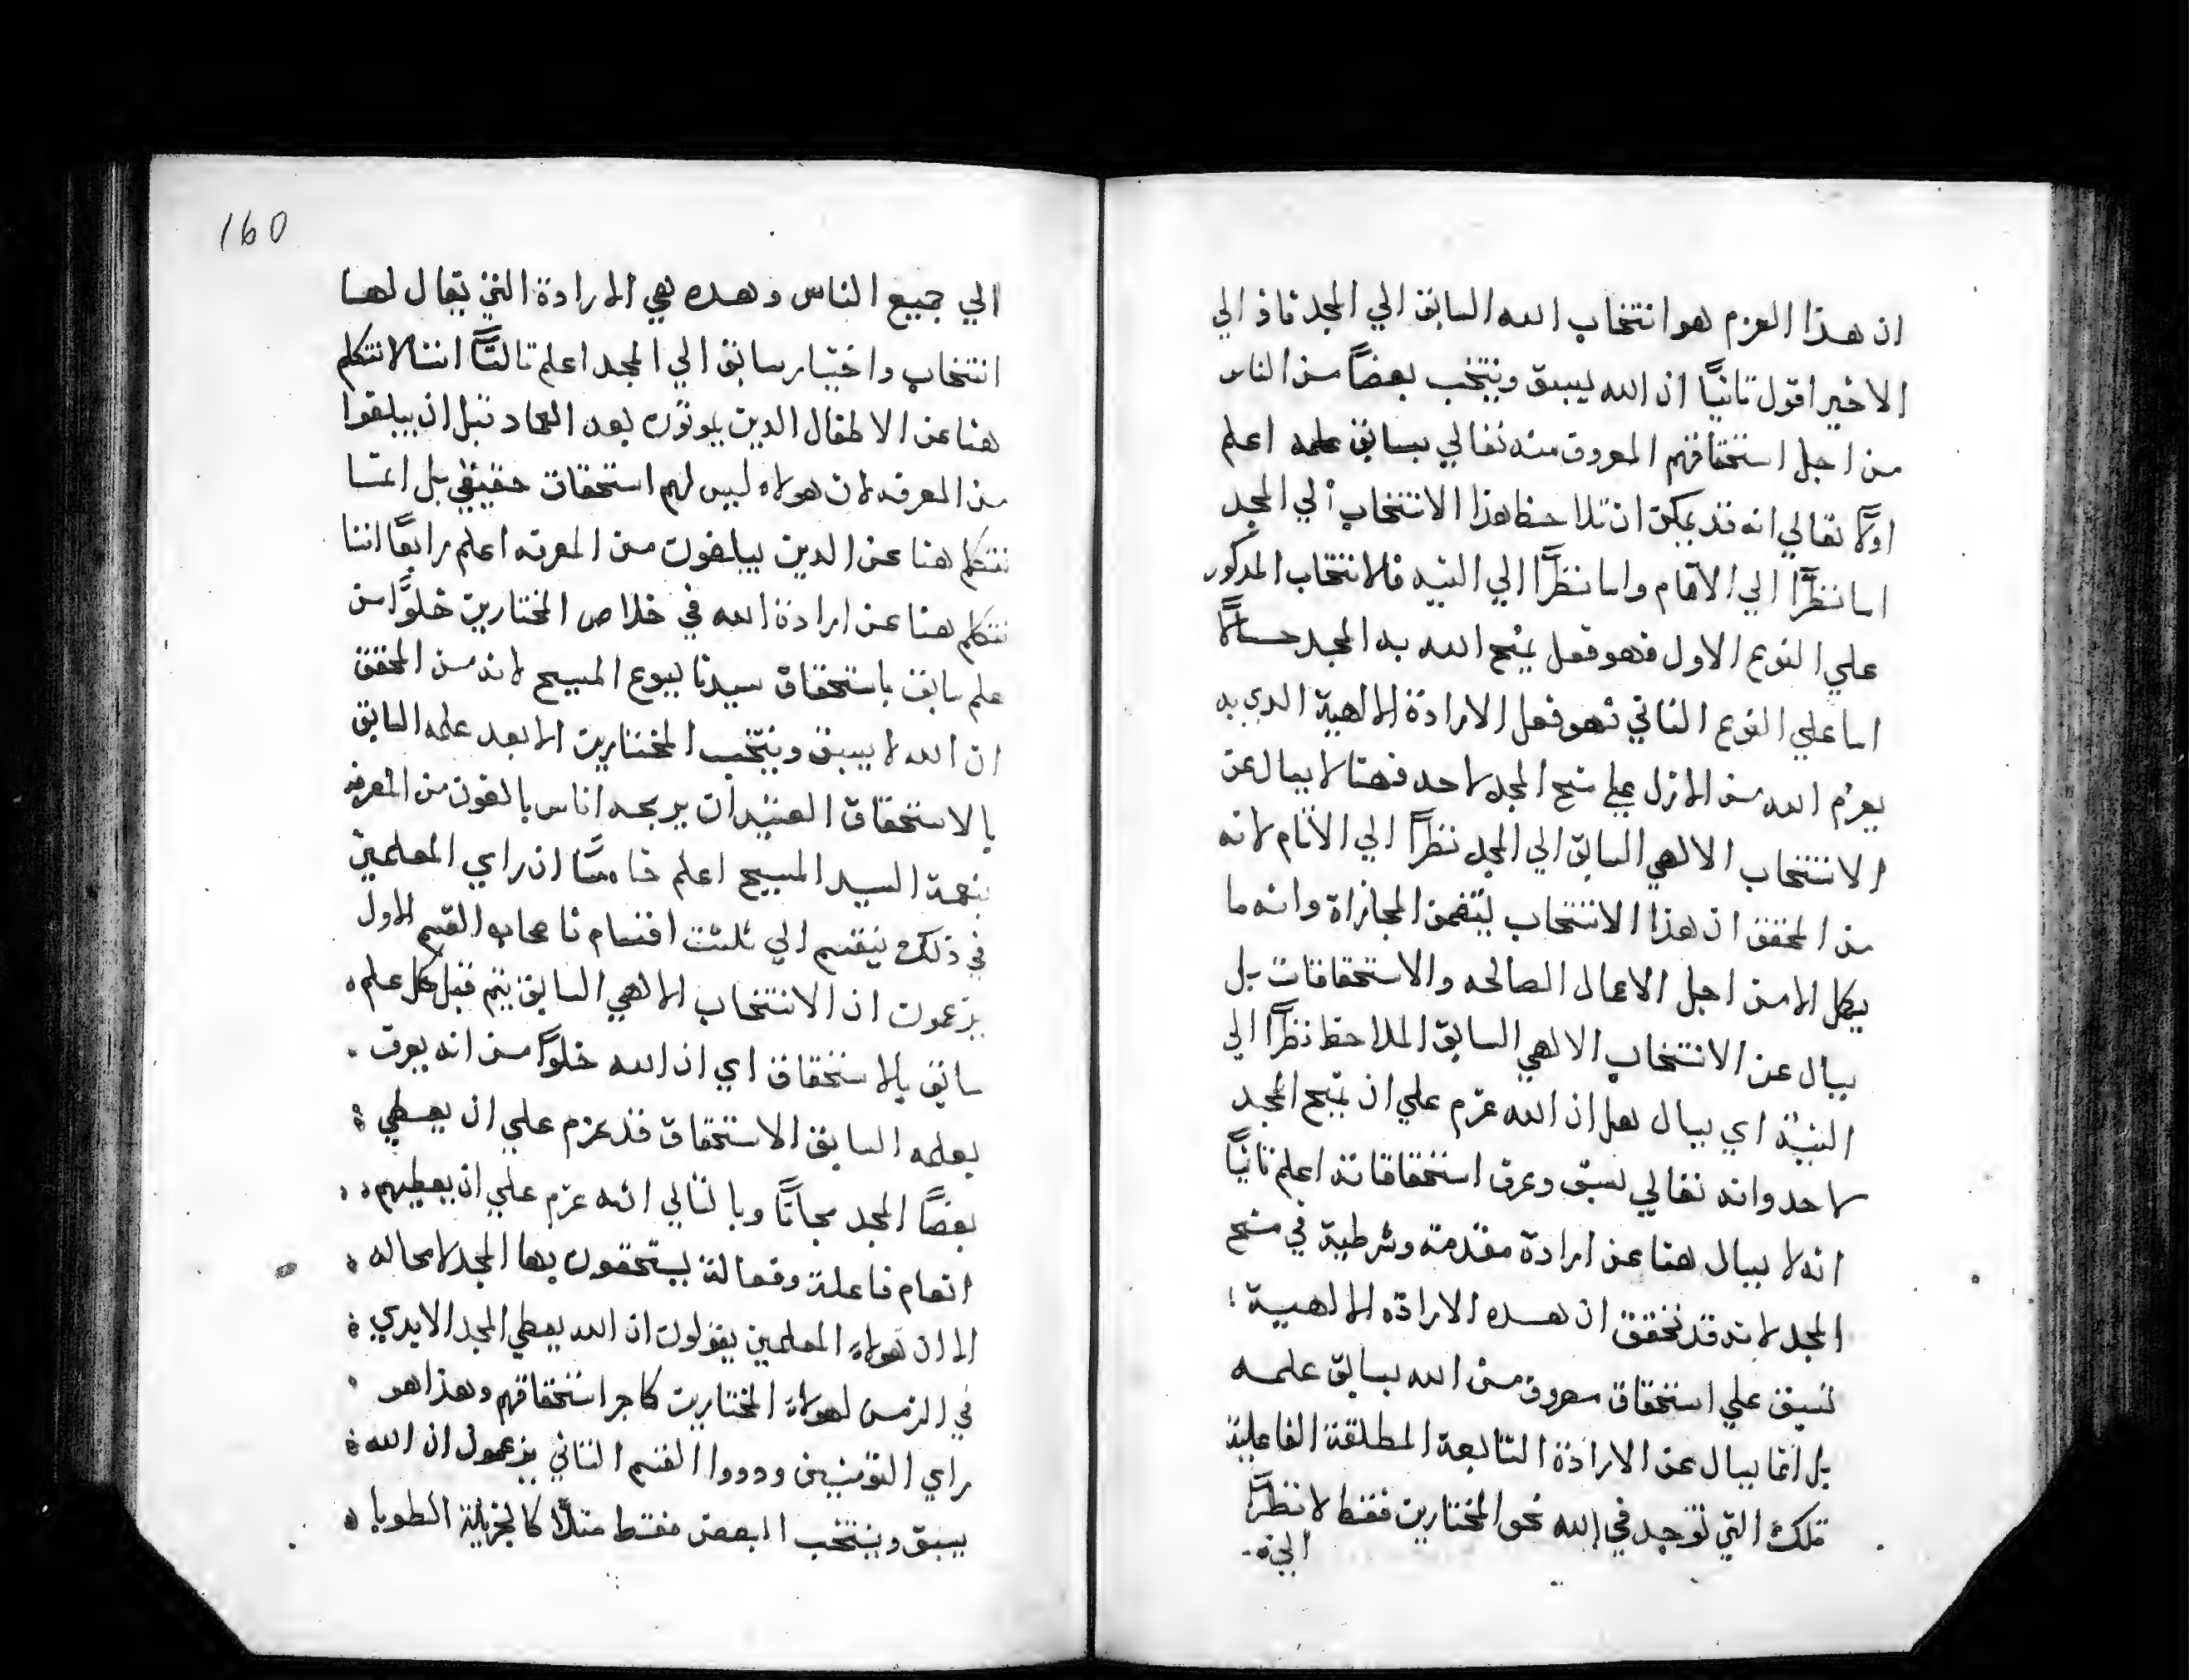 ان هذا العزم هو انتخاب الله السابق الي المجد فاذ الي
الاخير اقول ثانيًا ان الله يسبق وينتخب بعضًا من الناس
من اجل استحقاقهم المعروف منه تعالي بسابق علمه اعلم
اولًا تعالي انه قد يمكن ان تلاحظ هذا الانتخاب الي المجد
اما نظرًا الي الاتمام واما نظرًا الي النيه فالانتخاب المذكور
علي النوع الاول فهو فعل يمنح الله به المجد حسالًا
اما علي النوع الثاني فهو فعل الارادة الالهية الدي به
يعزم الله من الازل علي منح المجد لاحد فهنا لا يسال عن
الانتخاب الالهي السابق الي المجد نظرًا الي الاتمام لانه
من المحقق ان هذا الانتخاب يتضمن المجازاة وانه ما
يكمل الا من اجل الاعمال الصالحه والاستحقاقات بل
يسال عن الانتخاب الالهي السابق الملاحظ نظرًا الي
النيه اي يسال هل ان الله عزم علي ان يمنح المجد
لاحد وانه تعالي لسبق وعرف استحقاقاته اعلم ثانيًا
انه لا يسال هنا عن ارادة مقدمة وشرطية في منح
المجد لانه قد تحقق ان هده الارادة الالهية
تسبق علي استحقاق معروف من الله بسابق علمه
بل انما يسال عن الارادة التابعة المطلقة الفاعلية
تلك التي توجد في الله نحو المختارين فقط لا نظرًا
الي
160
الي جميع الناس وهده هي الارادة التي يقال لها
انتخاب واختيار سابق الي المجد اعلم ثالثًا اننا لا نتكلم
هنا عن الاطفال الدين يموتون بعد العماد قبل ان يبلغوا
من المعرفه لان هولاء ليس لهم استحقاق حقيقي بل انما
نتكلم هنا عن الدين يبلغون من المعرفه اعلم رابعًا اننا
نتكلم هنا عن ارادة الله في خلاص المختارين خلوًا من
علم سابق باستحقاق سيدنا يسوع المسيح لانه من المحقق
ان الله لا يسبق وينتخب المختارين الا بعد علمه السابق
بالاستحقاق العتيد ان يربحه اناس بالغون من المعرفه
بنعمة السيد المسيح اعلم خامسًا ان راي المعلمين
في ذلك ينقسم الي ثلثت اقسام فاصحاب القسم الاول
يزعمون ان الانتخاب الالهي السابق يتم قبل كل علم
سابق بالاستحقاق اي ان الله خلوًا من انه يعرف
بعلمه السابق الاستحقاق قد عزم علي ان يعطي
بعضًا المجد مجانًا وبالتالي انه عزم علي ان يعطيهم
انعام فاعلة وفعالة يستحقون بها المجد لا محاله
الا ان هولاء المعلمين يقولون ان الله يعطي المجد الابدي
في الزمن لهولاء المختارين كاجر استحقاقهم وهذا هو
راي التوميين القسم الثاني يزعمون ان الله
يسبق وينتخب البعض فقط مثلًا كالجزيلة الطوبا